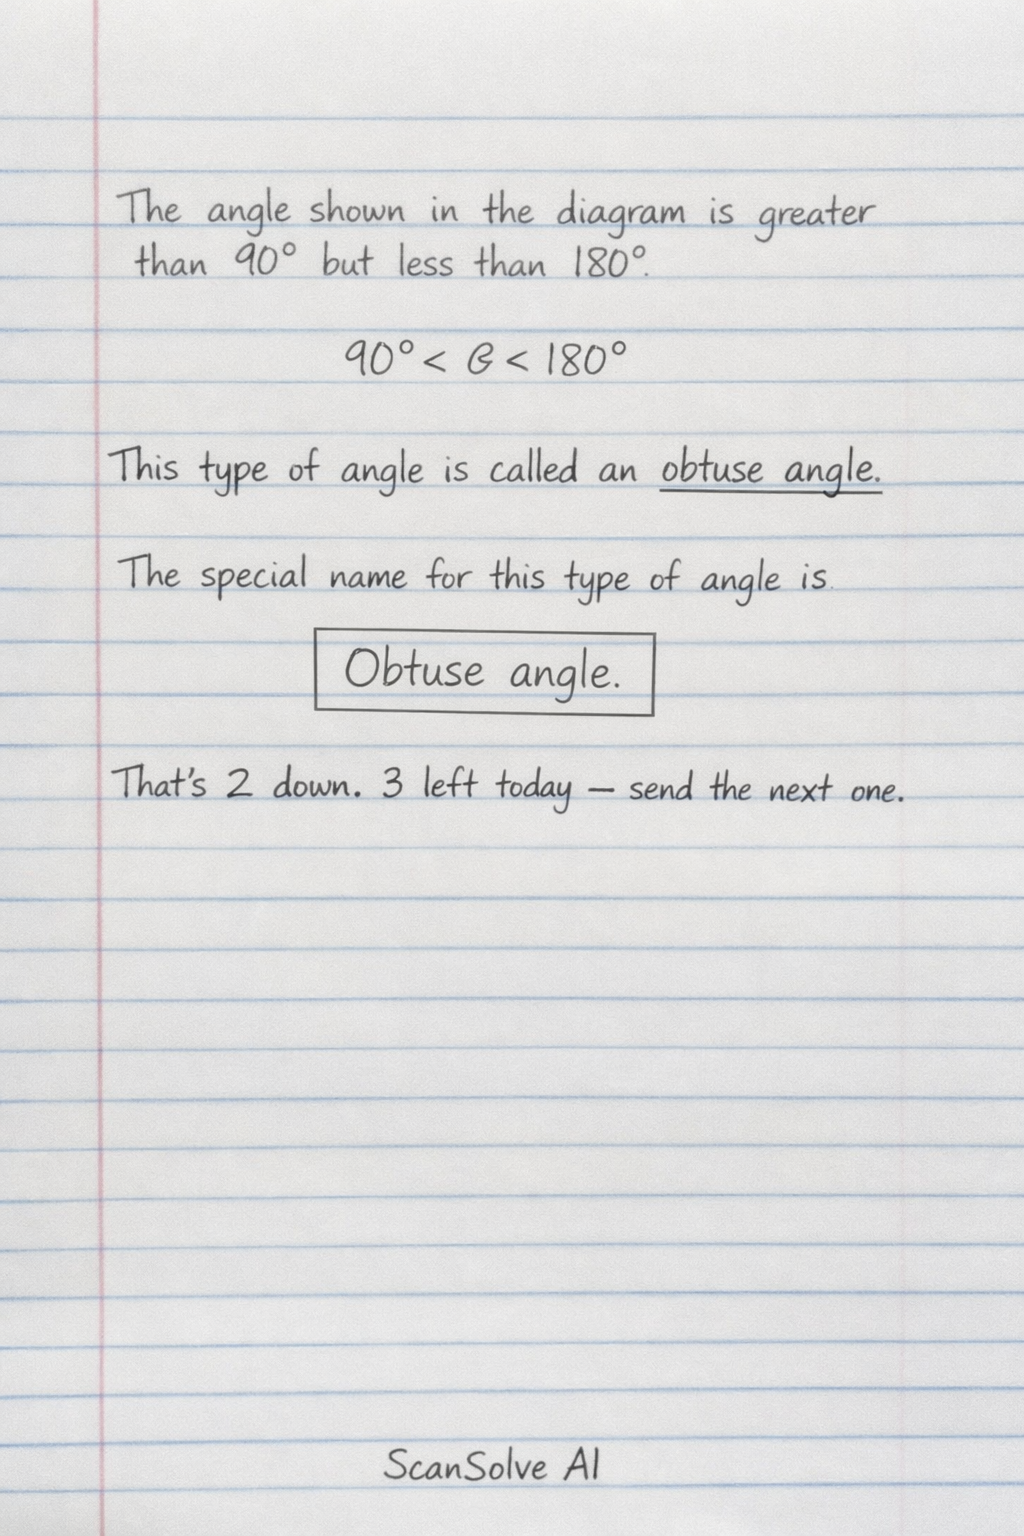 The angle shown in the diagram is greater
than 90° but less than 180°.
90° < G < 180°
This type of angle is called an obtuse angle.
The special name for this type of angle is.
Obtuse angle.
That's 2 down. 3 left today — send the next one.
ScanSolve AI